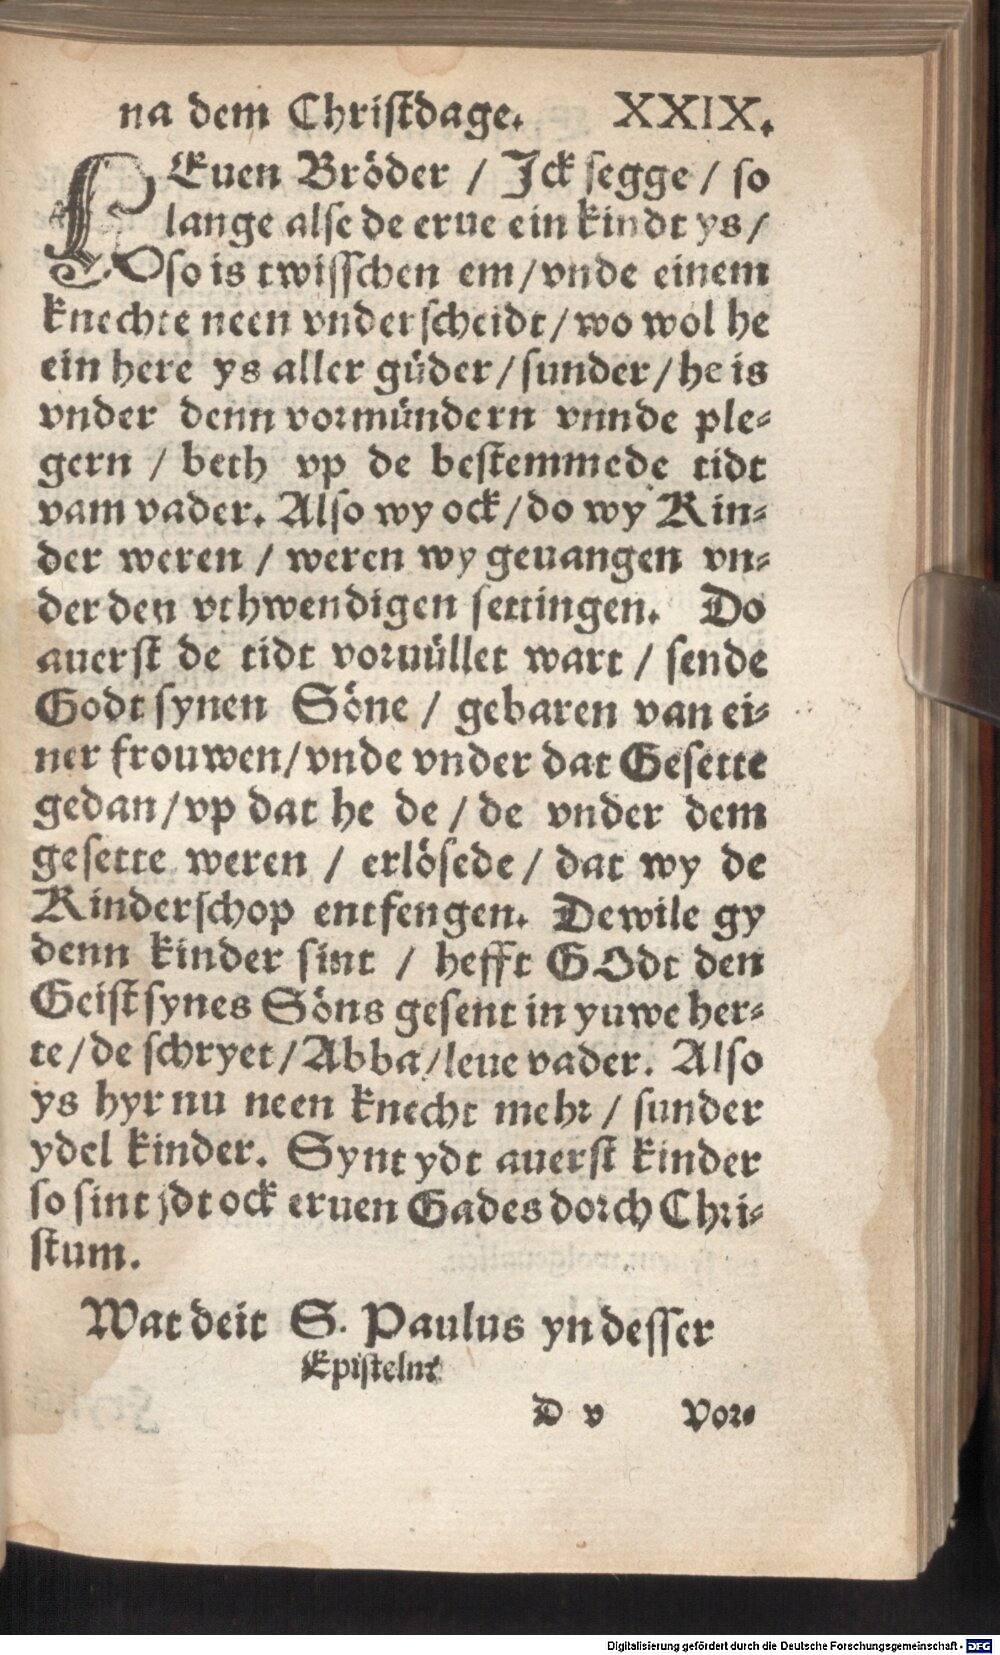 na dem Christdage. XXIX.
LEuen Bröder / Ick segge / so
lange alse de erue ein kindt ys /
so is twisschen em / vnde einem
knechte neen vnderscheidt / wo wol he
ein here ys aller güder / sunder / he is
vnder denn vormündern vnnde ple-
gern / beth vp de bestemmede tidt
vam vader. Also wy ock / do wy Kin-
der weren / weren wy geuangen vn-
der den vthwendigen settingen. Do
auerst de tidt voruüllet wart / sende
Godt synen Söne / gebaren van ei-
ner frouwen / vnde vnder dat Gesette
gedan / vp dat he de / de vnder dem
gesette weren / erlösede / dat wy de
Kinderschop entfengen. Dewile gy
denn kinder sint / hefft GOdt den
Geist synes Söns gesent in yuwe her-
te / de schryet / Abba / leue vader. Also
ys hyr nu neen knecht mehr / sunder
ydel kinder. Synt ydt auerst kinder
so sint ydt ock eruen Gades dorch Chri-
stum.
Wat deit S. Paulus yn desser
Epistelnt
D v Vor-
Digitalisierung gefördert durch die Deutsche Forschungsgemeinschaft - DFG